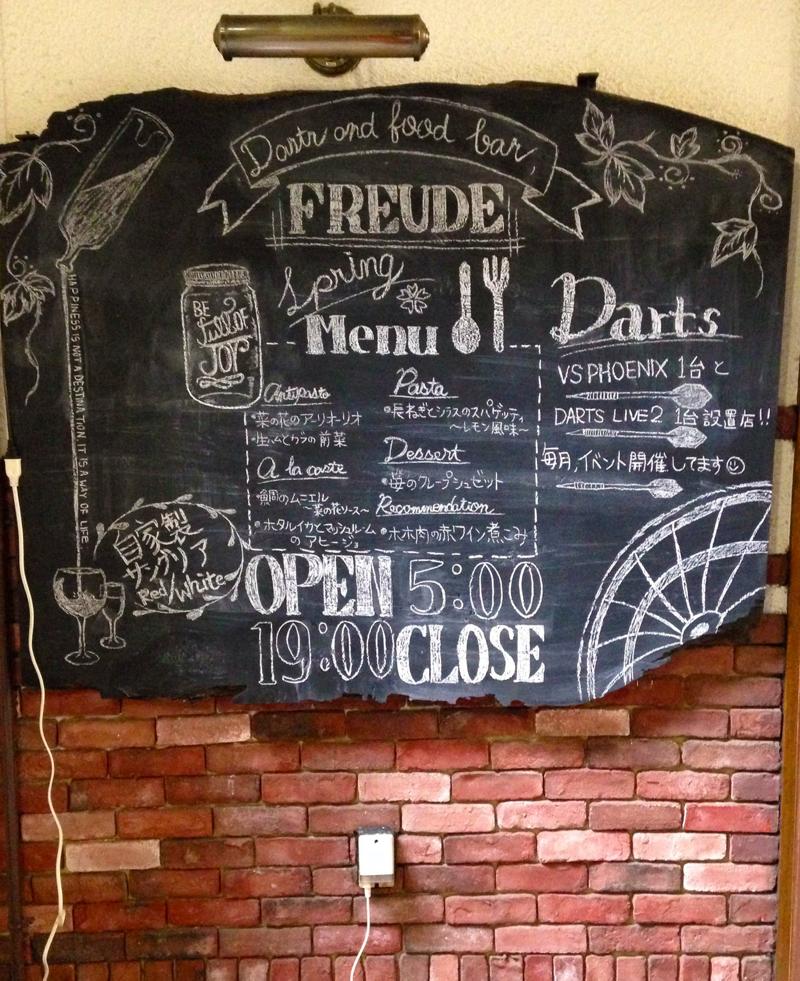 Darts and food bar,
FREUDE
Spring
Menu
BE
full of
JOY
HAPPINESS IS NOT A DESTINATION. IT IS A WAY OF LIFE.
自家製
サングリア
Red/White
Antipasto
・菜の花のアーリオ・リオ
・生ハムとカブの前菜
A la caste
・鯛のムニエル
〜菜の花ソース〜
・ホタルイカとマッシュルーム
のアヒージョ
Pasta
・長ねぎとシラスのスパゲッティ
〜レモン風味〜
Dessert
・苺のクレープシュゼット
Recommendation
・ホホ肉の赤ワイン煮こみ
Darts
VS PHOENIX 1台と
DARTS LIVE2 1台設置店!!
毎月、イベント開催してます
OPEN 5:00
19:00 CLOSE